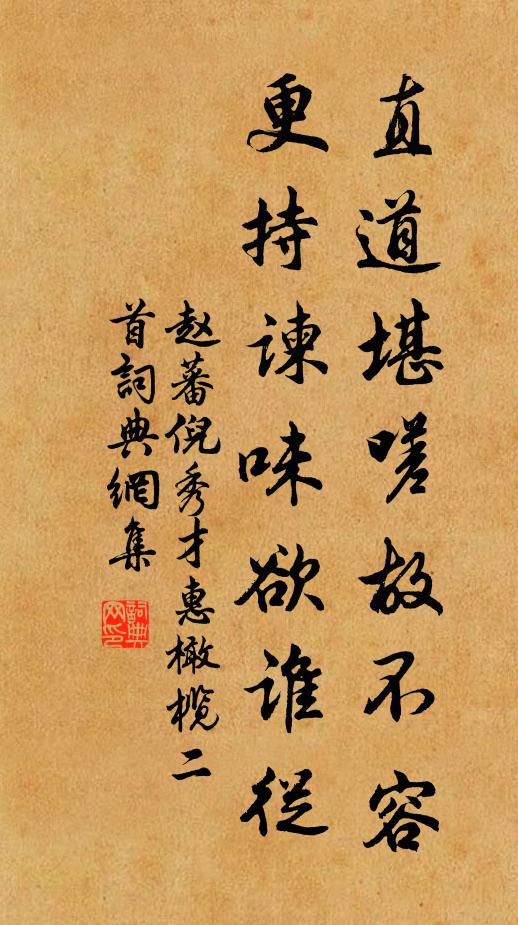 直道堪嗟故不容
更持諫味欲誰從
赵蕃倪秀才惠橄榄二
首詞典網集
詞典
网印